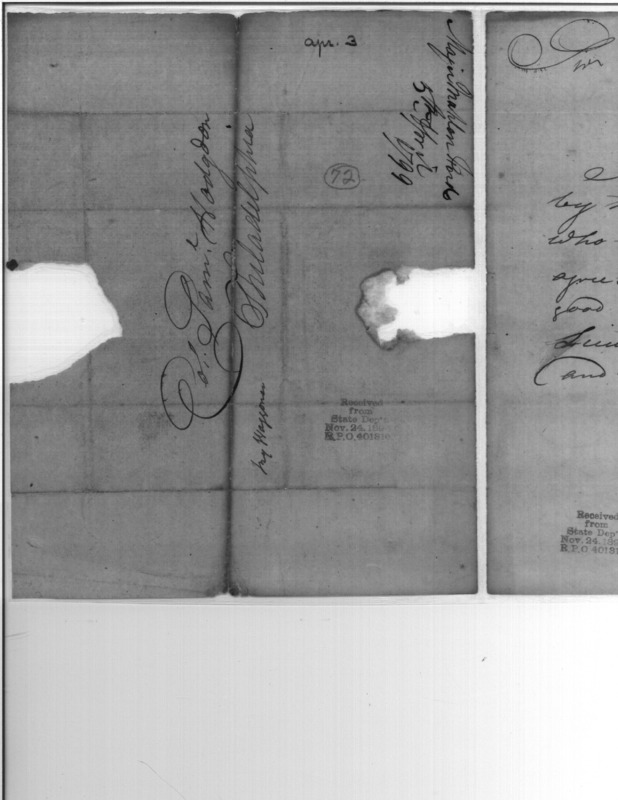 Apr. 3
Majr Mahlon Ford
5th April
1799
72
Col. Saml. Hodgdon
Philadelphia
Received
from
State Dep't
Nov. 24, 189
R.P.O. 401810
Sir
by
who
agree
good
and
Received
from
State Dep't
Nov. 24, 189
R.P.O. 4018